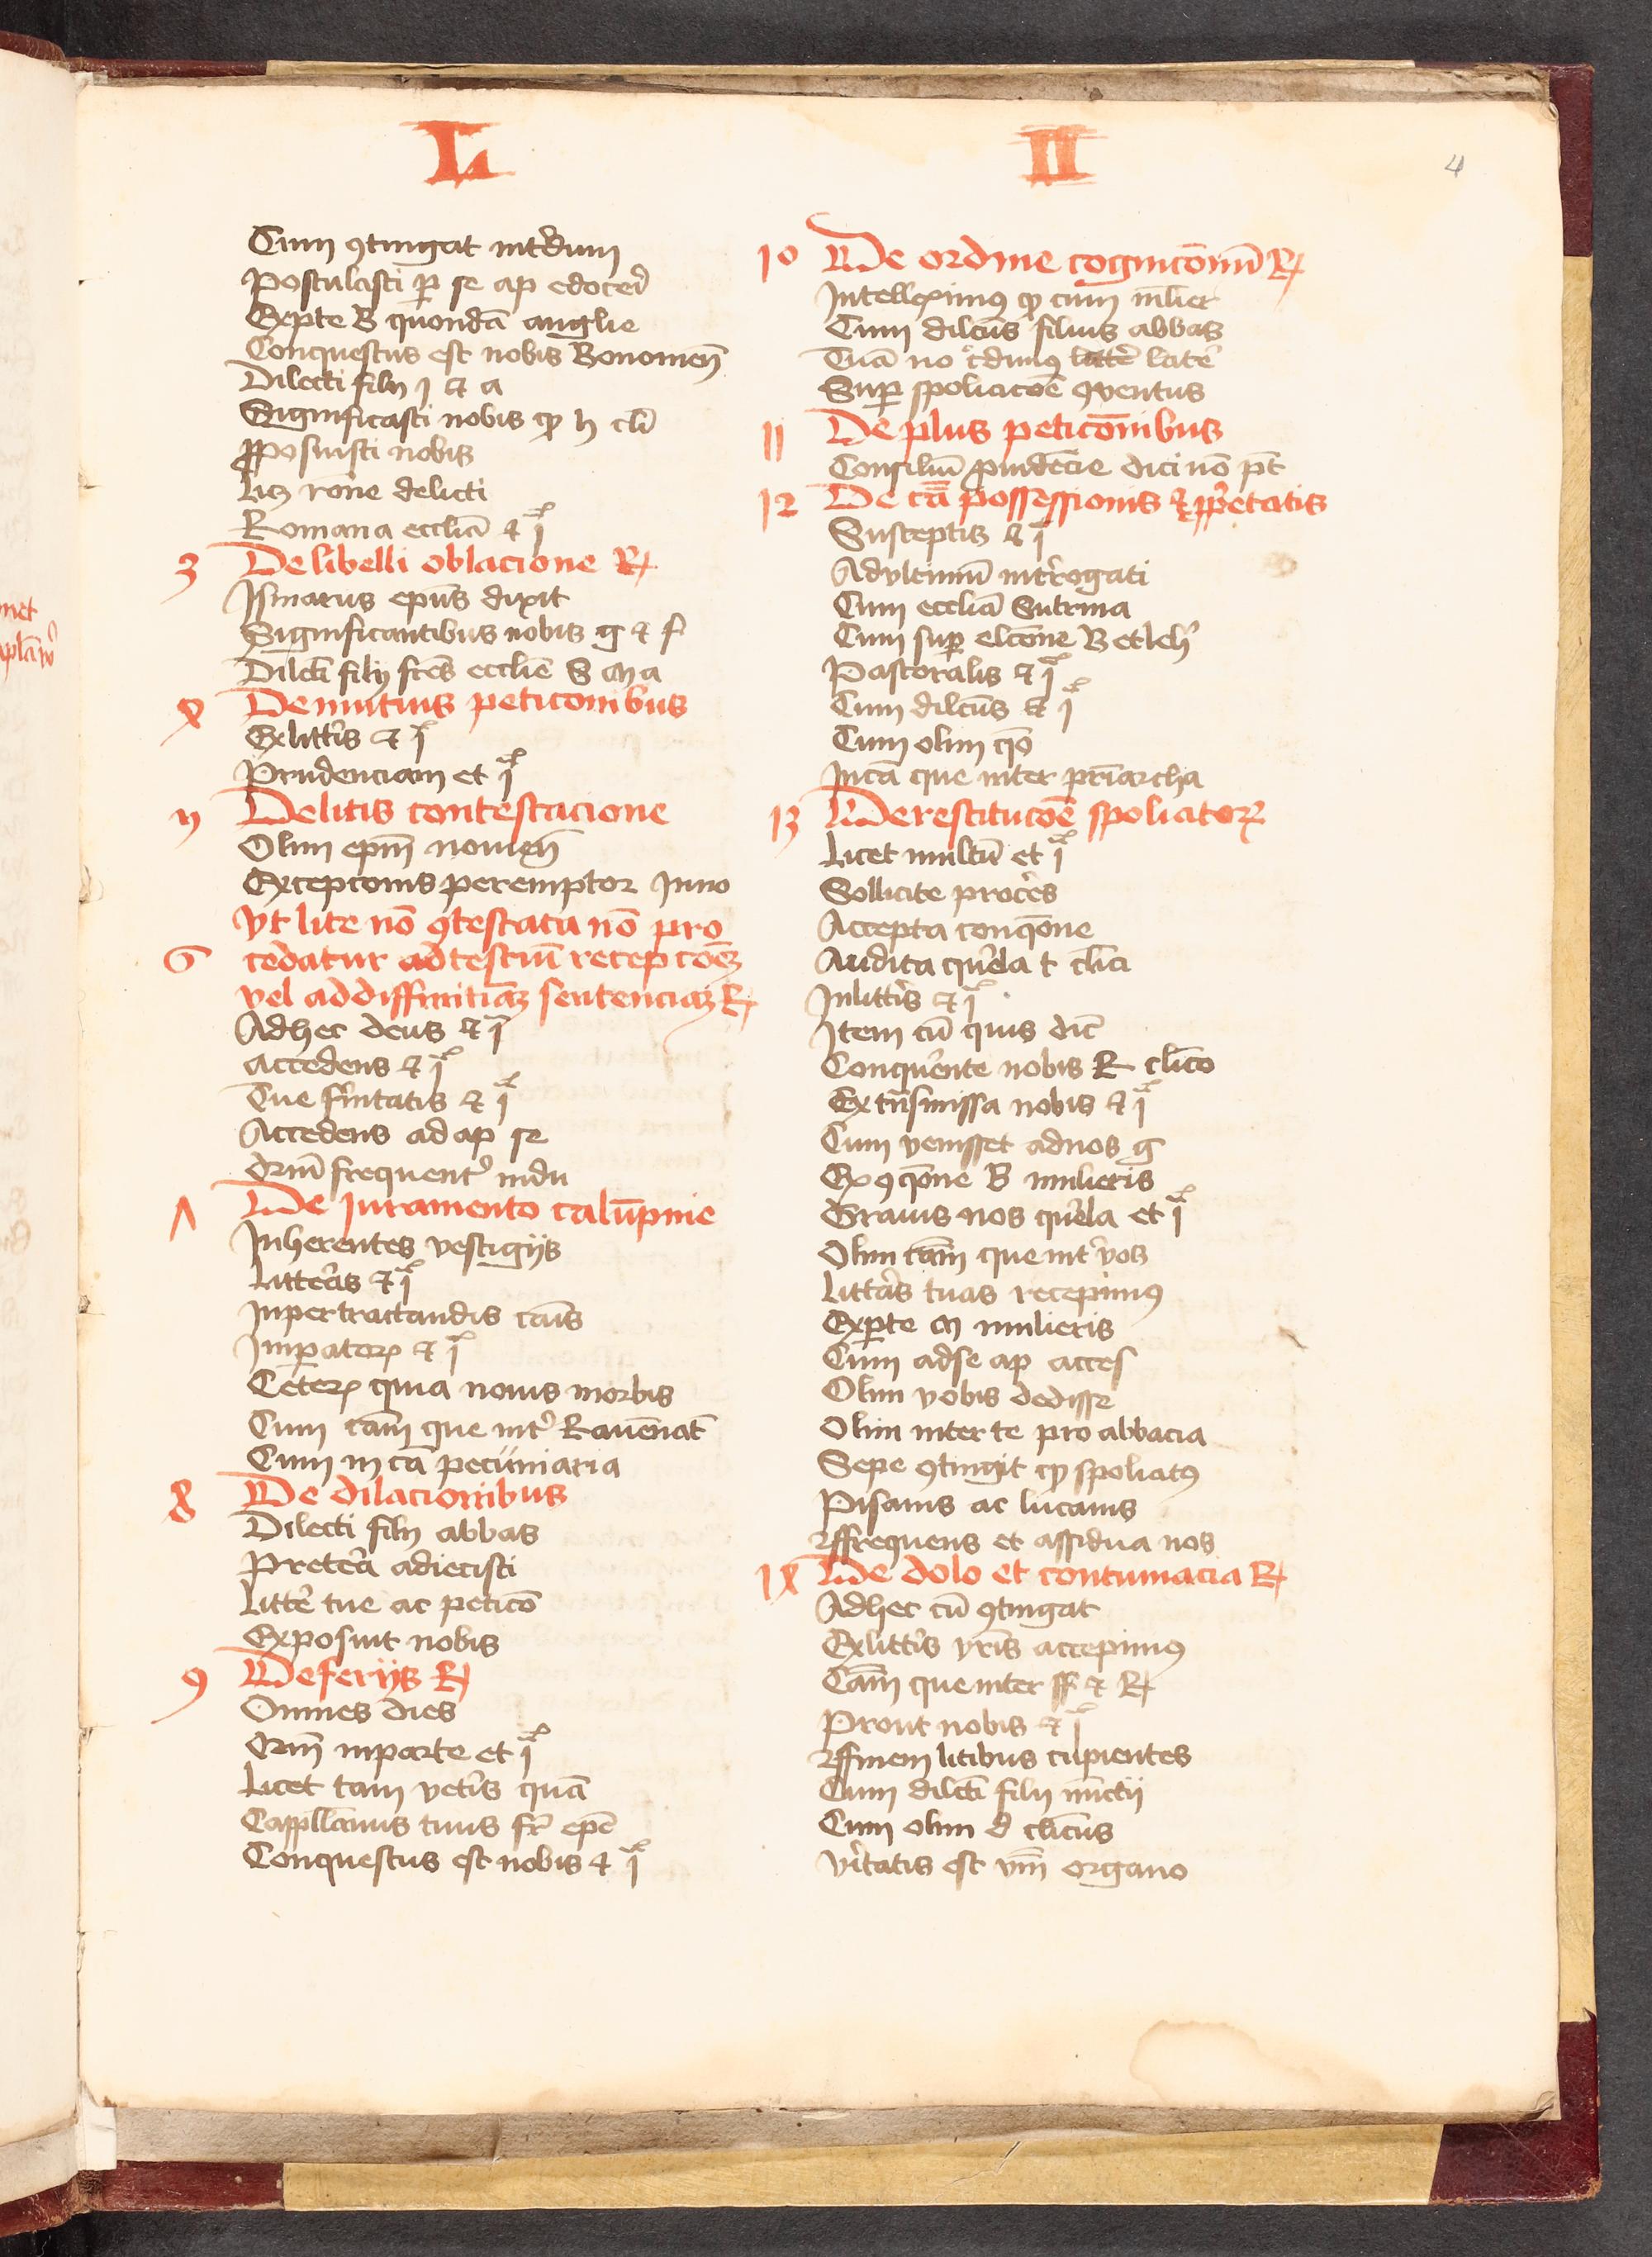 L II
4
Cum ꝯtingat int͛dum
Postulasti ꝑ se ap edoceri
Exꝑte B quondā anglie
Conquestus est nobis Bonomen̄
Dilecti filij J et a
Significasti nobis ꝙ h cl̄i
ꝓposuisti nobis
Licꝫ rōne delicti
Romana eccl̄ia et jᵃ
3 De libelli oblacione Rᵃ
Ismarus ep̄us dixit
Significantibus nobis g et f
Dilc̄ti filij fr̄es eccl̄ie S M a
4 De mutuis peticōnibus
Ex litt͛is et jᵃ
Prudenciam et jᵃ
5 De litis contestacione
Olim ep̄m nomen̄
Excepcōnis peremptor Inno
Vt lite nō ꝯtestata nō pro
6 cedatur ad testiū recepcōeꝫ
vel ad diffinitiāꝫ sentenciaꝫ Rᵃ
Adhec deus et jᵃ
Accedens et jᵃ
Tue fr̄nitatis et jᵃ
Accedens ad ap se
Qm̄ frequent͛ indu
7 De juramento calūpnie
Inherentes vestigijs
Litter͛is et jᵃ
In pertractandis cāis
Imꝑatorꝝ et jᵃ
Ceterꝝ quia nouis morbis
Cum cām que int͛ Rauēnat̄
Cum in cā pecuniaria
8 De dilacionibus
Dilecti filij abbas
Preter͛a adiecisti
Litter͛e tue ac peticō
Exposuit nobis
9 De ferijs Rᵃ
Omnes dies
Qm̄ in parte et jᵃ
Licet tam vet͛is quā
Cappllanus tuus fr̄ ep̄e
Conquestus est nobis et jᵃ
10 De ordine cognicōnū Rᵃ
Intellexim9 ꝙ cum ml̄ier
Cum dilcūs filius abbas
Suꝑ spoliacōe ꝯuentus
11 De plus peticōnibus
Consiliū ꝓuidēcie dici nō pt̄
12 De cā possessionis et ꝓpr͛etatis
Susceptis et jᵃ
Ad vltimū int͛rogati
Cum eccl̄ia Sutrina
Cum suꝑ elcōne Betleh͛
Pastoralis et jᵃ
Cum dilcūs et jᵃ
Cum olim qō
In cā que inter pr̄iarcha
13 De restitucōe spoliatorꝝ
Licet multū et jᵃ
Sollicite proc͛es
Accepta conq̄one
Audita quer͛la t cl̄ici
In litt͛is et jᵃ
Item cū quis dic̄
Conquer͛ente nobis R cl̄ico
Ex tn̄smissa nobis et jᵃ
Cum venisset ad nos g
Ex ꝯq̄one B mulieris
Grauis nos quer͛la et jᵃ
Olim cām que int͛ vos
Litter͛as tuas recepim9
Exꝑte M mulieris
Cum ad se ap acces
Olim vobis dedisse
Olim inter te pro abbacia
Sepe ꝯtingit ꝙ spoliat9
Pisanis ac lucanis
Ffrequens et assidua nos
14 De dolo et contumacia Rᵃ
Adhec cū ꝯtingat
Ex litt͛is vr̄is accepim9
Cām que inter ff et Rᵃ
Prout nobis et jᵃ
Ffinem litibus cupientes
Cum dilcti filij nūctij
Cum olim d cl̄icus
Ver͛itatis est vm̄ organo